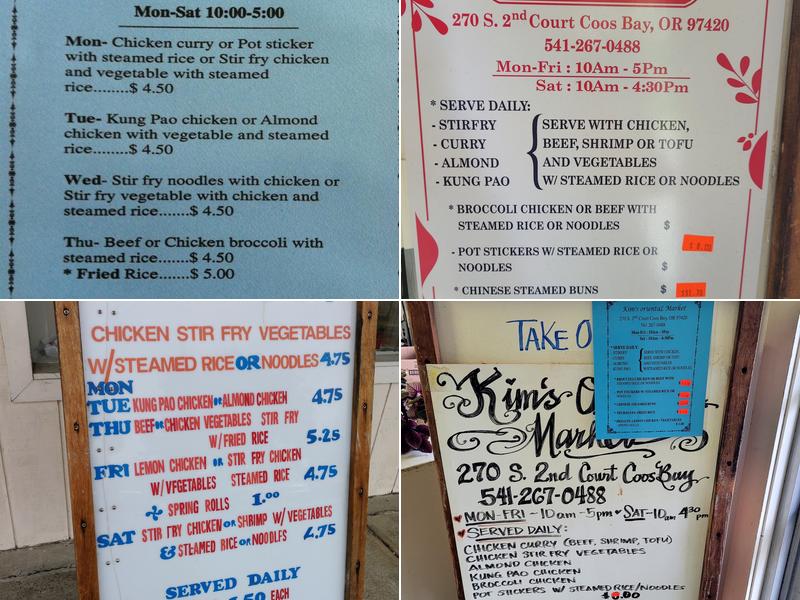 Mon-Sat 10:00-5:00
Mon- Chicken curry or Pot sticker
with steamed rice or Stir fry chicken
and vegetable with steamed
rice........$ 4.50
Tue- Kung Pao chicken or Almond
chicken with vegetable and steamed
rice........$ 4.50
Wed- Stir fry noodles with chicken or
Stir fry vegetable with chicken and
steamed rice.......$ 4.50
Thu- Beef or Chicken broccoli with
steamed rice.......$ 4.50
* Fried Rice.......$ 5.00
270 S. 2nd Court Coos Bay, OR 97420
541-267-0488
Mon-Fri : 10Am - 5Pm
Sat : 10Am - 4:30Pm
* SERVE DAILY:
- STIRFRY
- CURRY
- ALMOND
- KUNG PAO
SERVE WITH CHICKEN,
BEEF, SHRIMP OR TOFU
AND VEGETABLES
W/ STEAMED RICE OR NOODLES
* BROCCOLI CHICKEN OR BEEF WITH
STEAMED RICE OR NOODLES $
- POT STICKERS W/ STEAMED RICE OR
NOODLES $
* CHINESE STEAMED BUNS $
CHICKEN STIR FRY VEGETABLES
W/STEAMED RICE OR NOODLES 4.75
MON
TUE KUNG PAO CHICKEN or ALMOND CHICKEN 4.75
THU BEEF or CHICKEN VEGETABLES STIR FRY
W/FRIED RICE 5.25
FRI LEMON CHICKEN OR STIR FRY CHICKEN
W/VEGETABLES STEAMED RICE 4.75
+ SPRING ROLLS 1.00
SAT STIR FRY CHICKEN or SHRIMP W/VEGETABLES
& STEAMED RICE or NOODLES 4.75
SERVED DAILY
EACH
TAKE O
Kim's oriental Market
270 S. 2nd Court Coos Bay, OR 97420
541-267-0488
Kim's O
Market
270 S. 2nd Court Coos Bay
541-267-0488
MON-FRI-10am-5pm SAT-10am 430pm
SERVED DAILY:
CHICKEN CURRY (BEEF, SHRIMP, TOFU)
CHICKEN STIR FRY VEGETABLES
ALMOND CHICKEN
KUNG PAO CHICKEN
BROCCOLI CHICKEN
POT STICKERS W/ STEAMED RICE/NOODLES